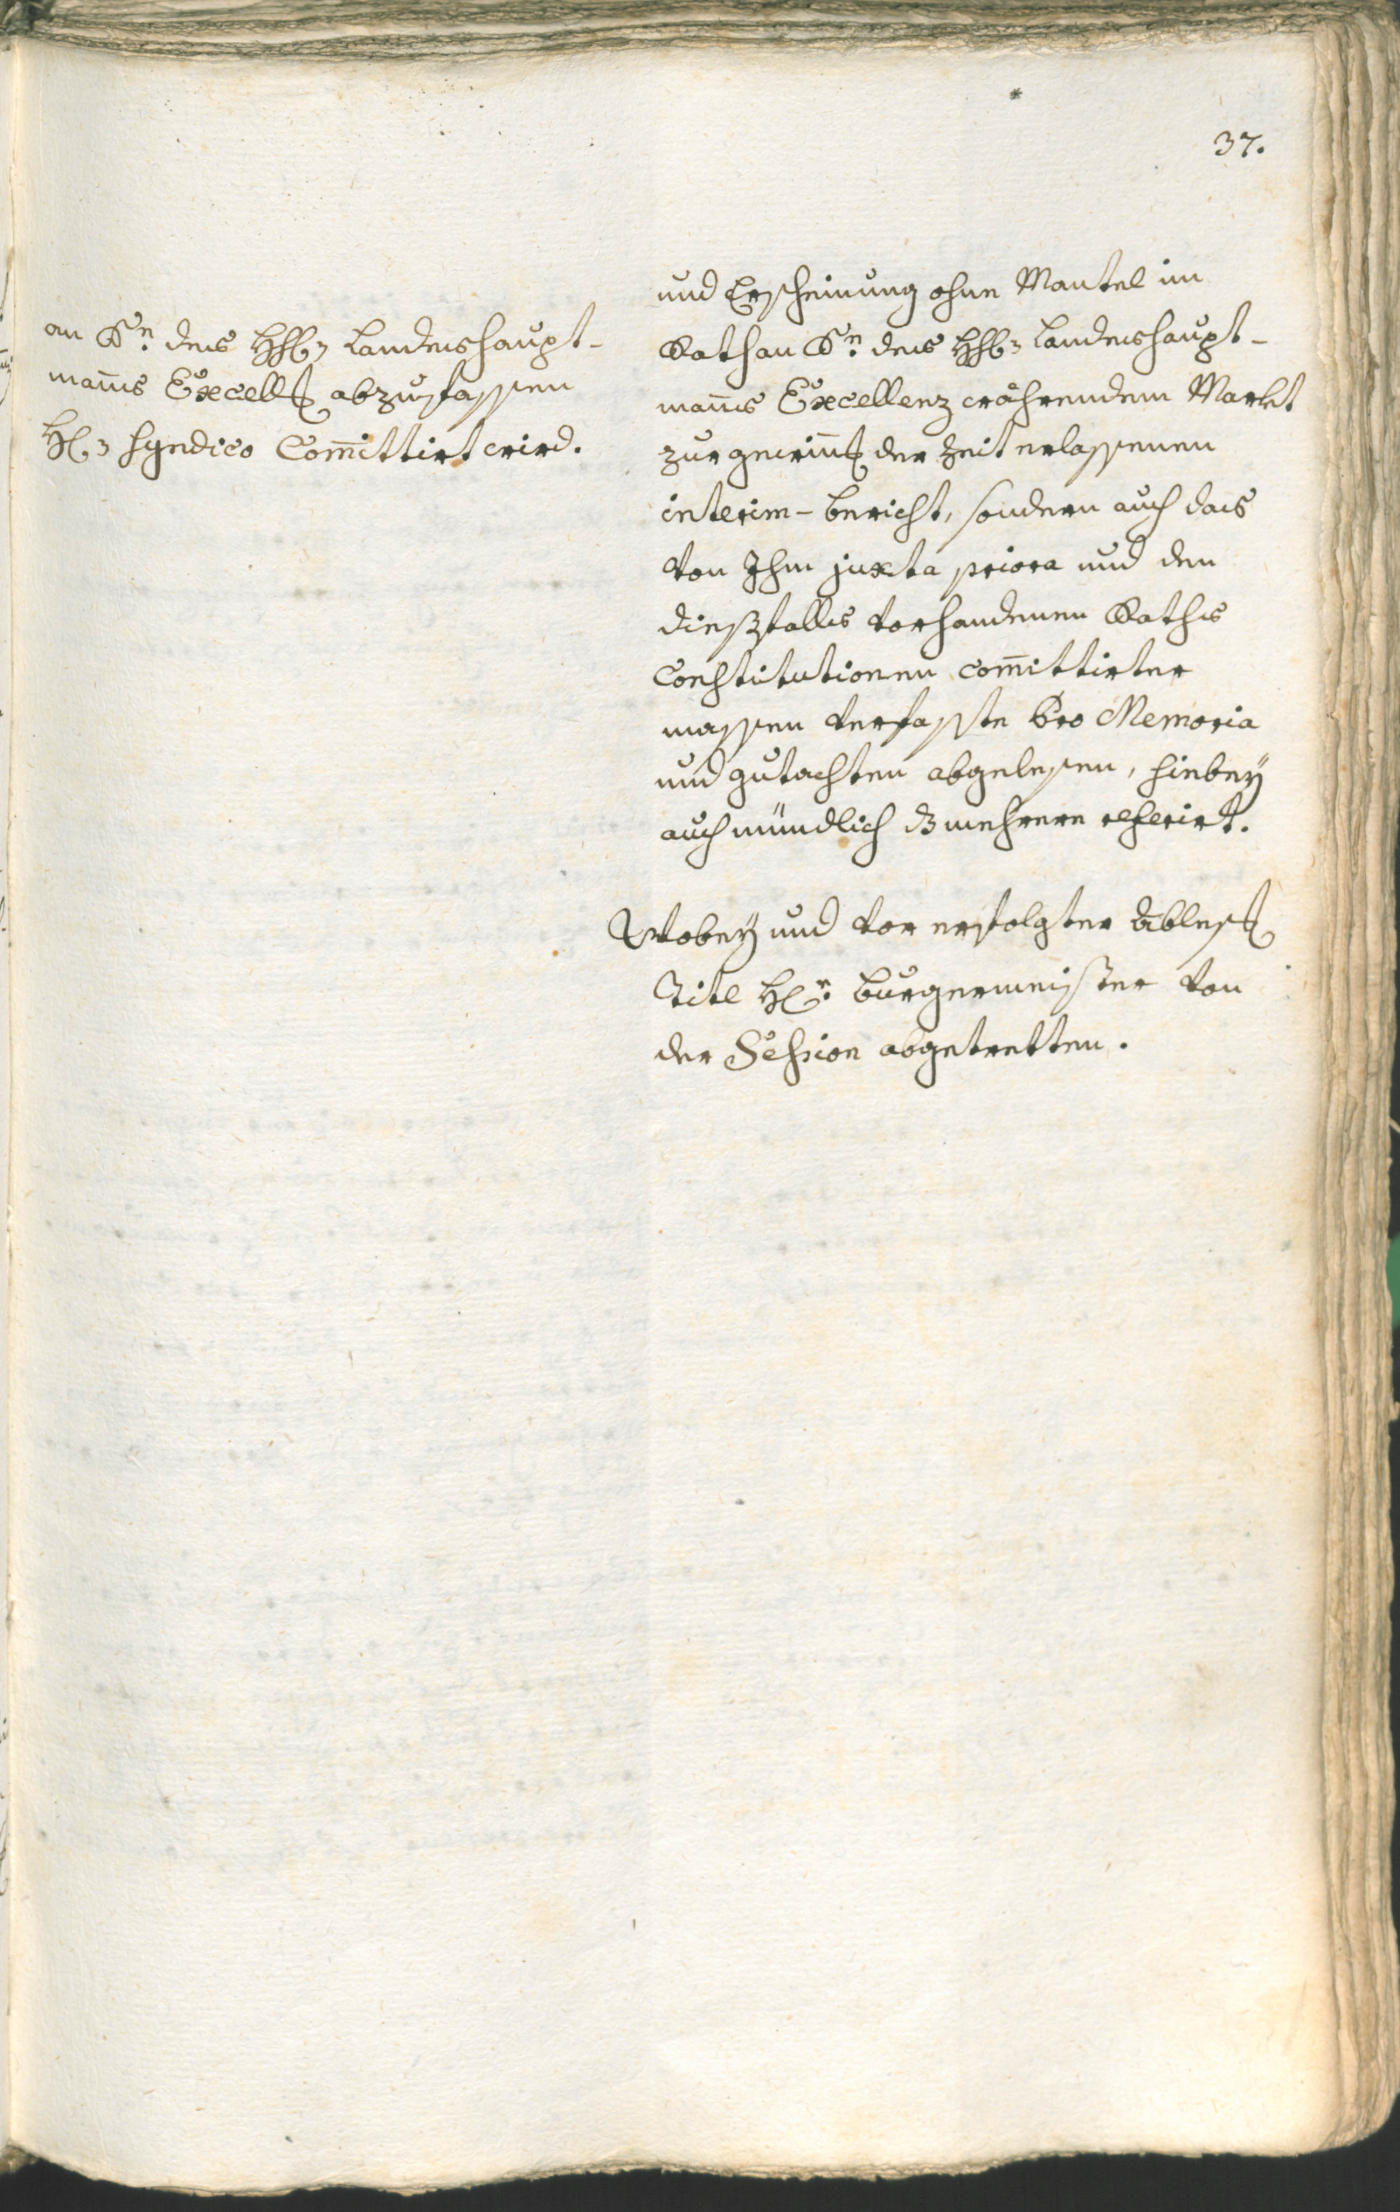 37.
an Sr. des Hhl. Landeshaupt-
manns Excell. abzufassen
H. Syndico Com̄ittirt wird.
und Erscheinung ohne Mantel im
Rath an Sr. des Hhl. Landeshaupt-
manns Excellenz währendem Markt
zur gewinn. der Zeit erlassenen
interim-bericht, sondern auch das
von Ihm juxta priora und den
dießfalls vorhandenen Raths
Constitutionen com̄ittirter
massen verfasste Pro Memoria
und gutachten abgelesen, hiebey
auch mündlich d mehrere referirt.
Wobey und vor erfolgter Ables.
Titl Hr. burgermeister von
der Session abgetretten.